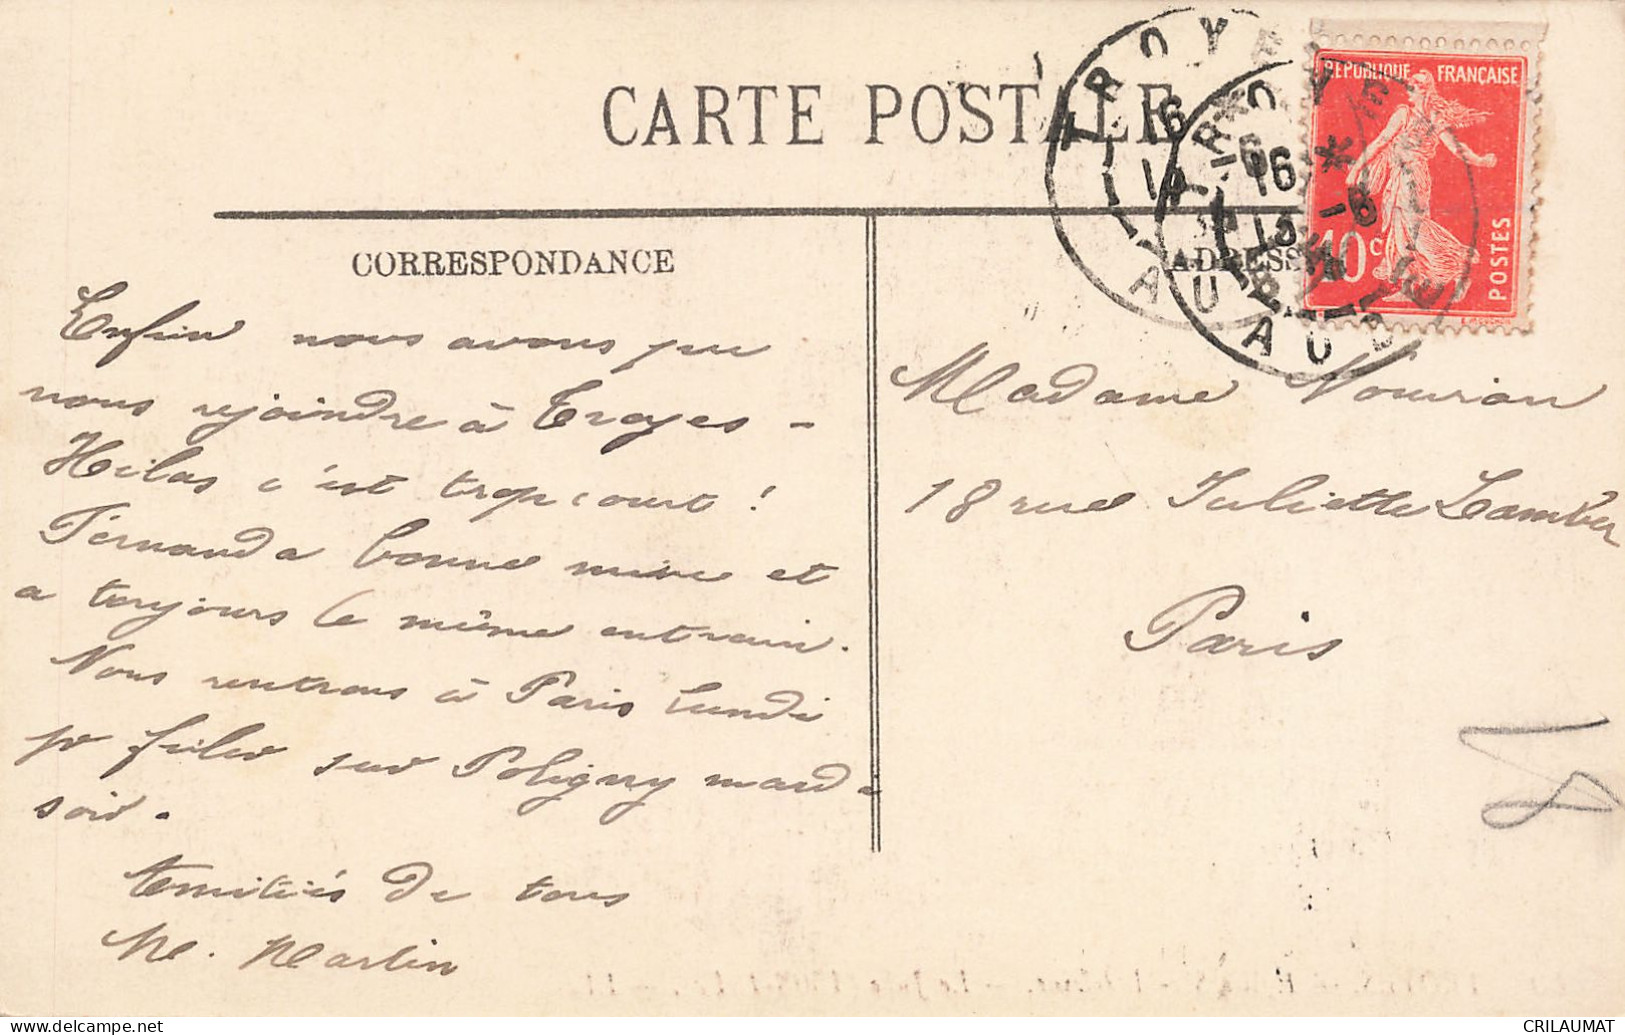 CARTE POSTALE
CORRESPONDANCE
ADRESSE
Enfin nous avons pu
nous rejoindre à Troyes -
Hélas c'est trop court !
Fernanda bonne mine et
a toujours le même entrain.
Nous rentrons à Paris lundi
pr filer sur Poligny mardi
soir.
Amitiés de tous
M. Martin
Madame Nourian
18 rue Juliette Lamber
Paris
REPUBLIQUE FRANÇAISE
10 c
POSTES
TROYES
16
AUBE
TROYES
16
15
AUBE
www.delcampe.net
CRILAUMAT